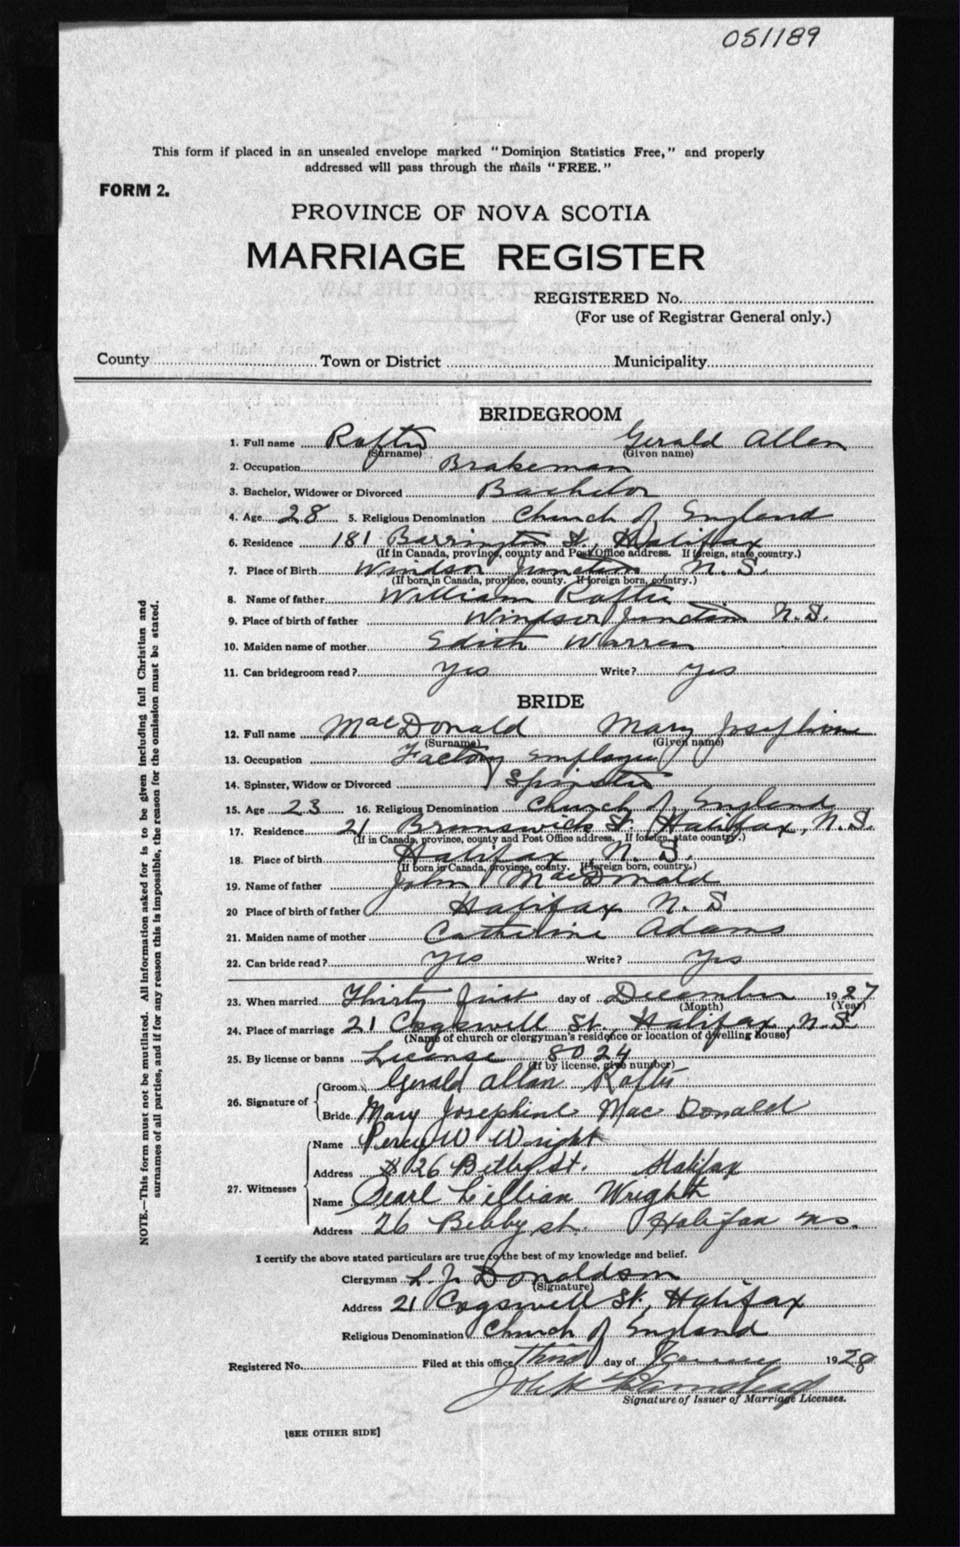 051189
This form if placed in an unsealed envelope marked "Dominion Statistics Free," and properly
addressed will pass through the mails "FREE."
FORM 2.
PROVINCE OF NOVA SCOTIA
MARRIAGE REGISTER
REGISTERED No.
(For use of Registrar General only.)
County Town or District Municipality
BRIDEGROOM
1. Full name Raftis Gerald Allan
(Surname) (Given name)
2. Occupation Brakeman
3. Bachelor, Widower or Divorced Bachelor
4. Age 28 5. Religious Denomination Church of England
6. Residence 181 Barrington St., Halifax
(If in Canada, province, county and Post Office address. If foreign, state country.)
7. Place of Birth Windsor Junction, N.S.
(If born in Canada, province, county. If foreign born, country.)
8. Name of father William Raftis
9. Place of birth of father Windsor Junction N.S.
10. Maiden name of mother Edith Warren
11. Can bridegroom read? Yes Write? Yes
BRIDE
12. Full name MacDonald Mary Josephine
(Surname) (Given name)
13. Occupation Factory employee
14. Spinster, Widow or Divorced Spinster
15. Age 23 16. Religious Denomination Church of England
17. Residence 21 Brunswick St. Halifax, N.S.
(If in Canada, province, county and Post Office address. If foreign, state country.)
18. Place of birth Halifax, N.S.
(If born in Canada, province, county. If foreign born, country.)
19. Name of father John MacDonald
20 Place of birth of father Halifax N.S.
21. Maiden name of mother Catherine Adams
22. Can bride read? Yes Write? Yes
23. When married Thirty first day of December 1927
(Month) (Year)
24. Place of marriage 21 Cogswell St., Halifax, N.S.
(Name of church or clergyman's residence or location of dwelling house)
25. By license or banns License 8024
(If by license, give number)
26. Signature of Groom Gerald Allan Raftis
Bride Mary Josephine Mac Donald
27. Witnesses Name Percy W Wright
Address 26 Bilby St. Halifax
Name Pearl Lillian Wright
Address 26 Bilby st. Halifax NS.
I certify the above stated particulars are true to the best of my knowledge and belief.
Clergyman L. J. Donaldson
(Signature)
Address 21 Cogswell St., Halifax
Religious Denomination Church of England
Registered No. Filed at this office Third day of January 1928
Signature of Issuer of Marriage Licenses.
[SEE OTHER SIDE]
NOTE.—This form must not be mutilated. All information asked for is to be given including full Christian and
surnames of all parties, and if for any reason this is impossible, the reason for the omission must be stated.